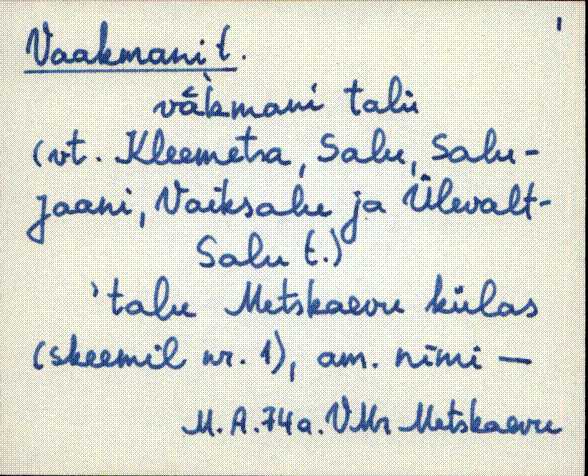 1
Vaakmani t.
vàkmani talu
(vt. Kleemetsa, Salu, Salu-
jaani, Vaiksalu ja Ülevalt-
Salu t.)
'talu Metskaevu külas
(skeemil nr. 1), am. nimi —
M. A. 74 a. VMr Metskaevu